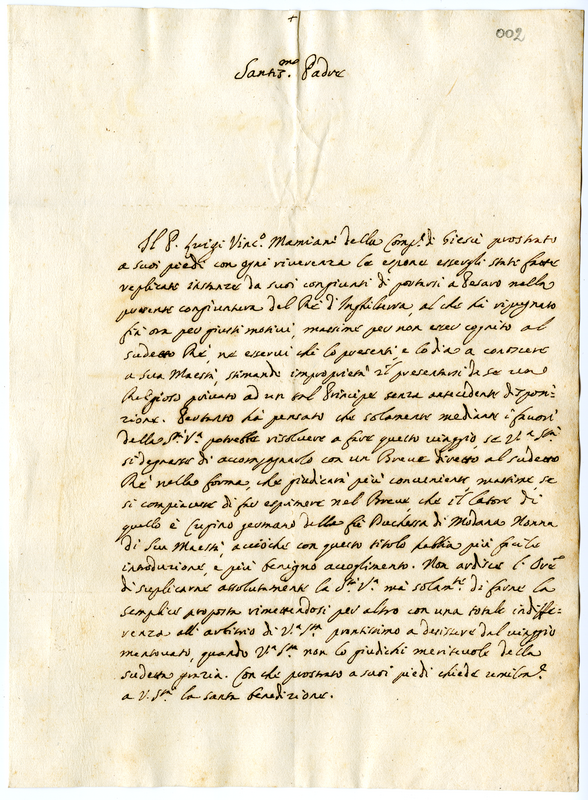 +
002
Santis.mo Padre
Il P. Luigi Vinc.o Mamiani della Comp.a di Giesù prostrato
a suoi piedi con ogni riverenza le espone essergli state fatte
replicate instanze da suoi congiunti di portarsi a Pesaro nella
presente congiuntura del Rè d'Inghilterra, al che hà ripugnato
fin ora per giusti motivi, massime per non esser cognito al
sudetto Rè, ne esservi chi lo presenti, e lo dia a conoscere
a Sua Maestà, stimando improprietà il presentarsi da se un
Religioso privato ad un tal Principe senza antecedente disposi-
zione. Pertanto hà pensato che solamente mediante i favori
della S.tà V.a potrebbe risolvere a fare questo viaggio se V.a S.tà
si degnasse di accompagnarlo con un Breve diretto al sudetto
Rè nella forma, che giudicarà più conveniente massime se
si compiacesse di far esprimere nel Breve che il latore di
quello è Cugino germano della fù Duchessa di Modana Nonna
di Sua Maestà, acciòche con questo titolo habbia più facile
introduzione, e più benigno accoglimento. Non ardisce l'Ore
di supplicarne assolutamente la S.tà V.a mà solam.te di farne la
semplice proposta rimettendosi per altro con una totale indiffe-
renza all'arbitrio di V.a S.tà prontissimo a desistere dal viaggio
mentovato, quando V.a S.tà non lo giudichi meritevole della
sudetta grazia. Con che prostrato a suoi piedi chiede umilm.te
a V. S.tà la santa benedizione.